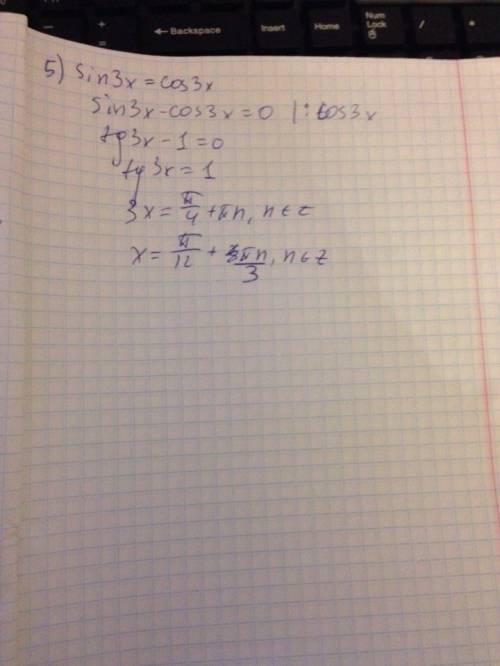 ← Backspace
Insert
Home
Num Lock
/
*
- + =
5) sin3x = cos3x
sin3x - cos3x = 0 |: cos3x
tg3x - 1 = 0
tg3x = 1
3x = π/4 + πn, n ∈ z
x = π/12 + πn/3, n ∈ z